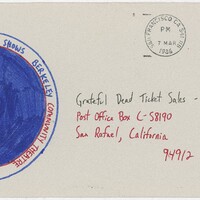 SHOWS BERKELEY COMMUNITY THEATRE
SAN FRANCISCO CA
PM
7 MAR
1986
Grateful Dead Ticket Sales -
Post Office Box C-S8190
San Rafael, California
94912